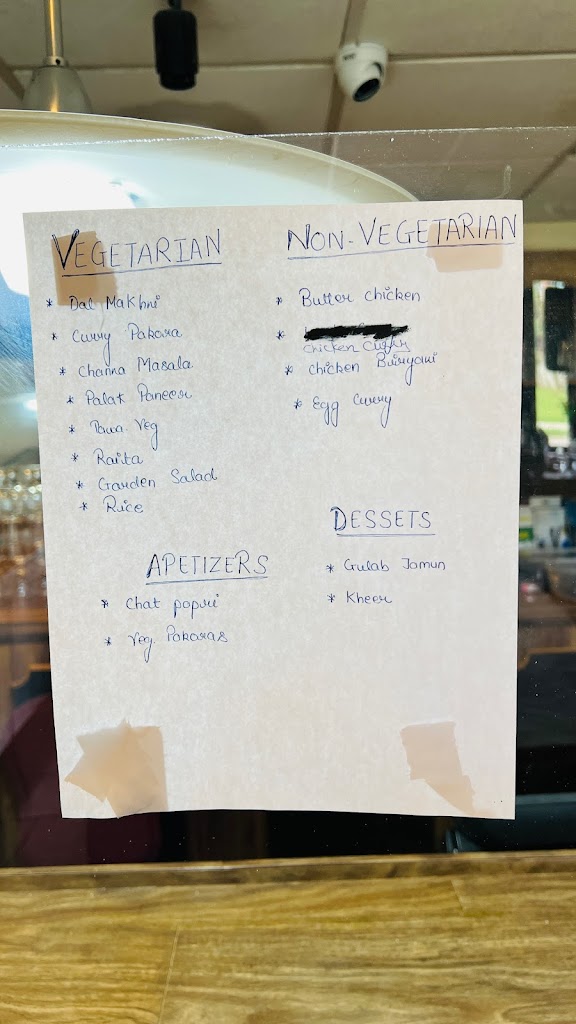 VEGETARIAN
* Dal Makhni
* Curry Pakora
* Channa Masala
* Palak Paneer
* Tawa Veg
* Raita
* Garden Salad
* Rice
APETIZERS
* Chat papri
* Veg. Pakoras
NON-VEGETARIAN
* Butter chicken
*
chicken curry
* Chicken Buryani
* Egg Curry
DESSETS
* Gulab Jamun
* Kheer